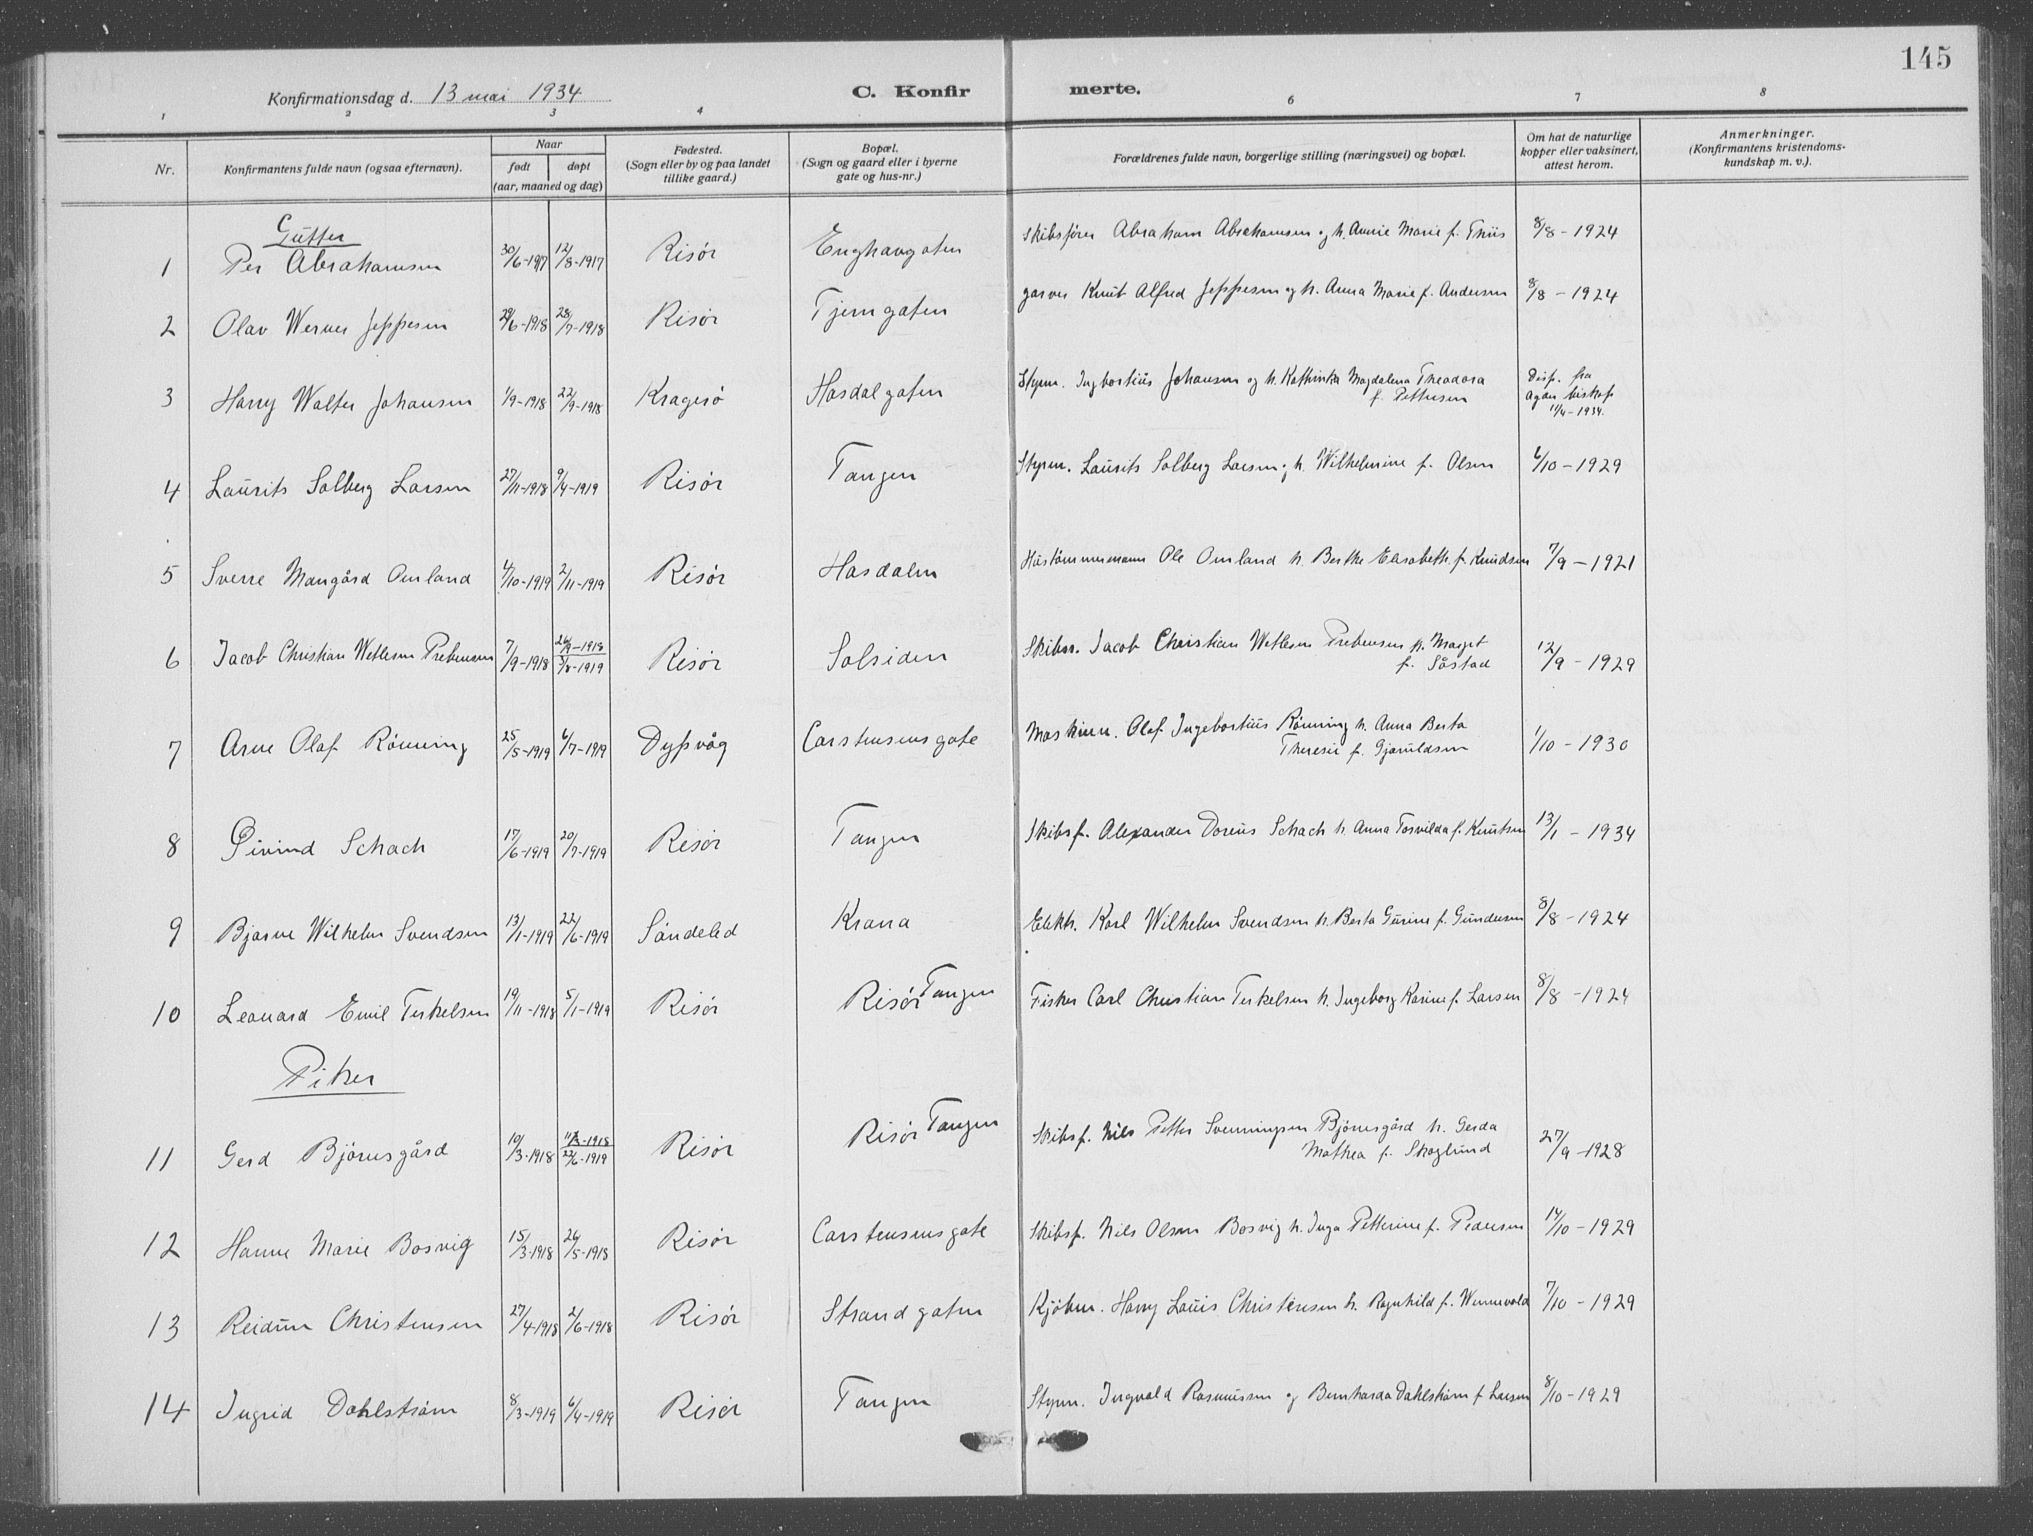 145
Konfirmationsdag d. 13 mai 1934
C. Konfirmerte.
1 2 3 4 6 7 8
Nr. Konfirmantens fulde navn (ogsaa efternavn). Naar født døpt (aar, maaned og dag) Fødested. (Sogn eller by og paa landet tillike gaard.) Bopæl. (Sogn og gaard eller i byerne gate og hus-nr.) Forældrenes fulde navn, borgerlige stilling (næringsvei) og bopæl. Om hat de naturlige kopper eller vaksinert, attest herom. Anmerkninger. (Konfirmantens kristendomskundskap m. v.).
Gutter
1 Per Abrahamsen 30/6-1917 12/8-1917 Risør Enghavgaten Skibsfører Abraham Abrahamsen og h. Annie Marie f. 8/8-1924
2 Olav Werner Jeppesen 29/6-1918 28/7-1918 Risør Tjerngaten garver Knut Alfred Jeppesen og h. Anna Marie f. Andersen 8/8-1924
3 Harry Walter Johansen 1/9-1918 22/9-1918 Kragerø Hasdalgaten Styrm. Ingbortius Johansen og h. Kathinka Magdalena Theodora
f. Pettersen Disp. fra
Agder biskop
11/4-1934.
4 Laurits Solberg Larsen 27/11-1918 9/4-1919 Risør Tangen Styrm. Laurits Solberg Larsen og h. Wilhelmine f. Olsen 6/10-1929
5 Sverre Mangård Omland 4/10-1919 2/11-1919 Risør Hasdalen Hustømmermann Ole Omland h. Berthe Elisabeth f. Knudsen 7/9-1921
6 Jacob Christian Wetlesen Prebensen 7/9-1918 26/9-1918
3/8-1919 Risør Solsiden Skibsr. Jacob Christian Wetlesen Prebensen h. Marget
f. Såstad 12/9-1929
7 Arne Olaf Rönning 25/5-1919 6/7-1919 Dypvåg Carstensensgate Maskinm. Olaf Ingebortius Rönning h. Anna Berta
Theresie f. Gjeruldsen 1/10-1930
8 Øivind Schach 17/6-1919 20/7-1919 Risør Tangen Skibsf. Alexander Doreus Schach h. Anna Torvilda f. Knutsen 13/1-1934
9 Bjarne Wilhelm Svendsen 13/1-1919 22/6-1919 Söndeled Krana Elektr. Karl Wilhelm Svendsen h. Berta Gurine f. Gundersen 8/8-1924
10 Leonard Emil Terkelsen 19/11-1918 5/1-1919 Risør Risør Tangen Fisker Carl Christian Terkelsen h. Ingeborg Karine f. Larsen 8/8-1924
Piker
11 Gerd Björnsgård 10/3-1918 -1918
22/6-1919 Risør Risør Tangen Skibsf. Nils Petter Svenningsen Björnsgård h. Gerda
Mathea f. Skoglund 27/9-1928
12 Hanne Marie Bosvig 15/3-1918 26/5-1918 Risør Carstensensgate Skibsf. Nils Olsen Bosvig h. Inga Petterine f. Pedersen 14/10-1929
13 Reidun Christensen 27/4-1918 2/6-1918 Risør Strandgaten Kjöbm. Harry Louis Christensen h. Ragnhild f. Wennevold 7/10-1929
14 Ingrid Dahlström 8/3-1919 6/4-1919 Risør Tangen Styrm. Ingvald Rasmussen og Bernharda Dahlström f. Larsen 8/10-1929